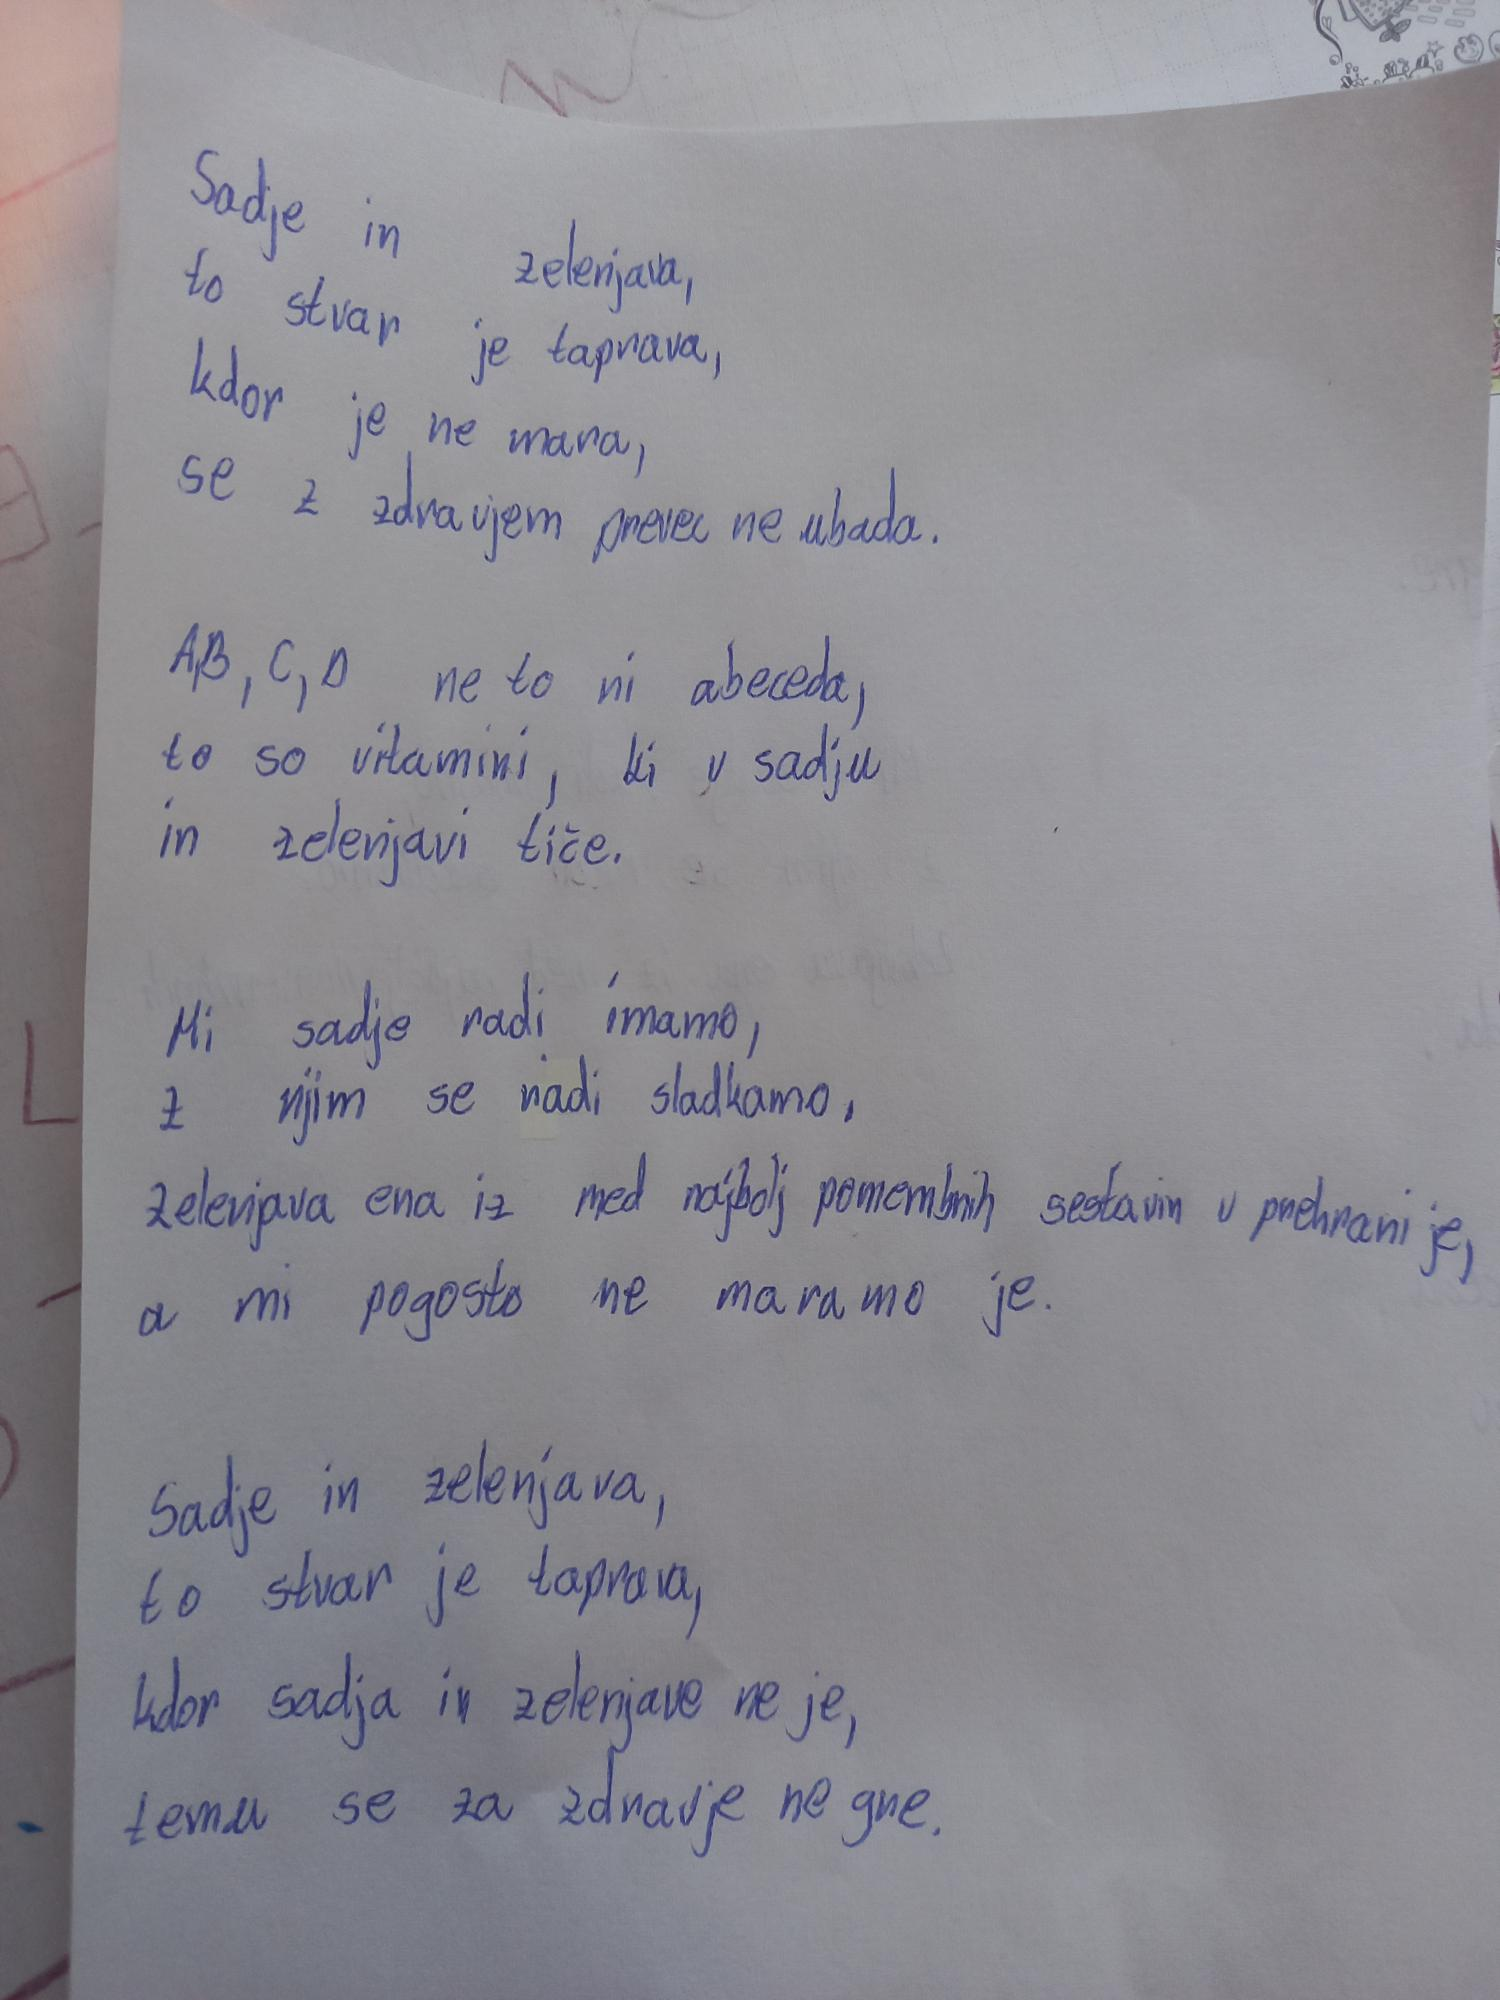 Sadje in zelenjava,
to stvar je taprava,
kdor je ne mara,
se z zdravjem prevec ne ubada.
A,B, C, D ne to ni abeceda,
to so vitamini, ki v sadju
in zelenjavi tiče.
Mi sadje radi imamo,
z njim se radi sladkamo,
zelenjava ena iz med najbolj pomembnih sestavin v prehrani je,
a mi pogosto ne maramo je.
Sadje in zelenjava,
to stvar je taprava,
kdor sadja in zelenjave ne je,
temu se za zdravje ne gre.